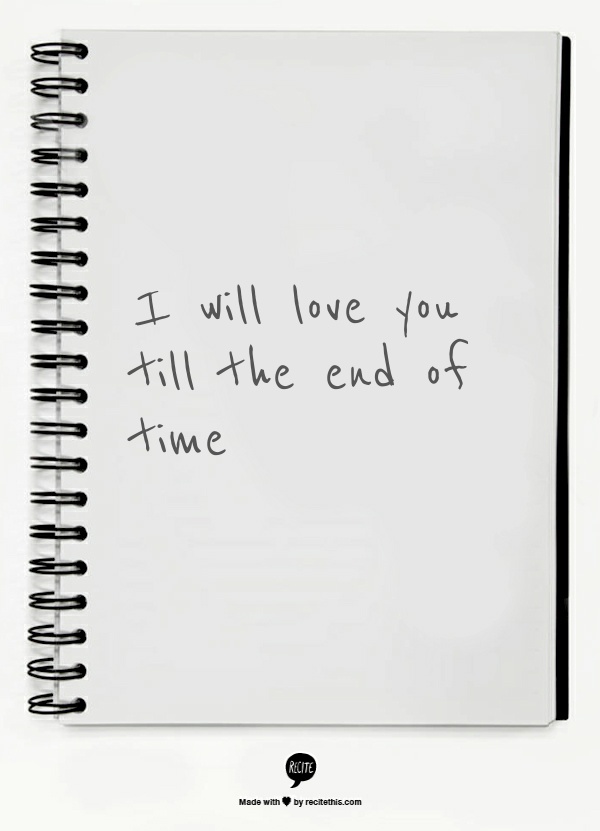 I will love you
till the end of
time
RECITE
Made with ♥ by recitethis.com